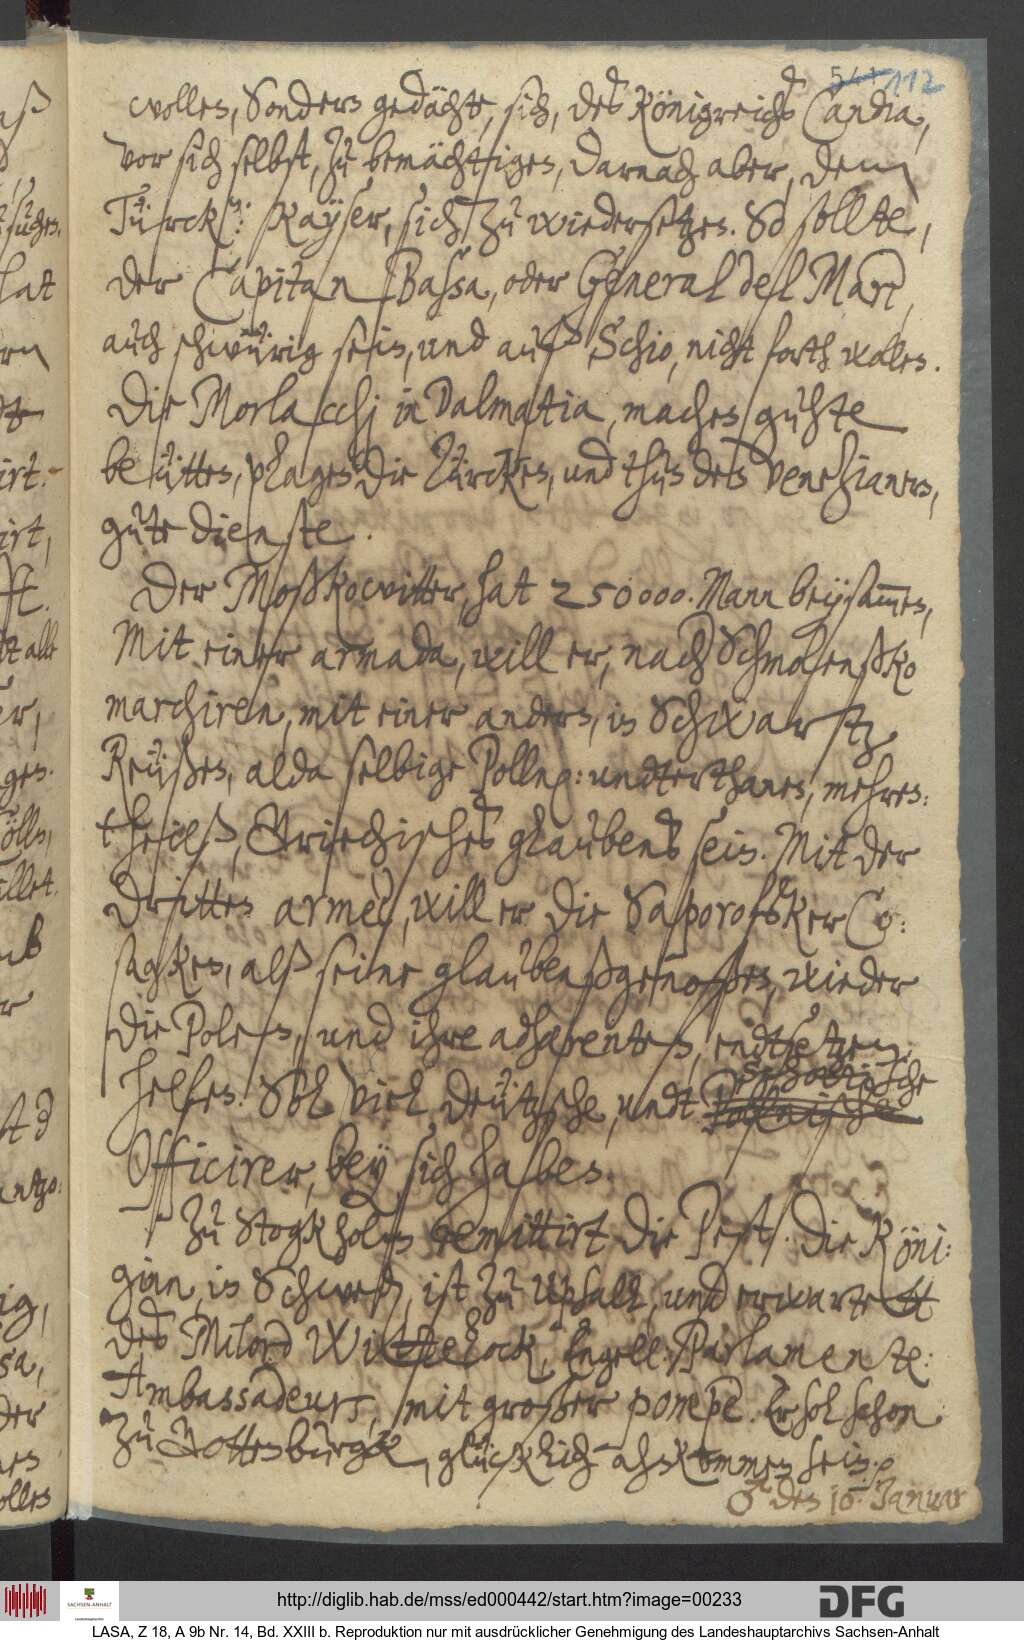 541 112
wollen, Sondern gedächte, sich, des Königreichs Candia,
vor sich selbst, zu bemächtigen, darnach aber, dem
Türck: Kayser, sich zu wiedersetzen. So sollte,
der Capitan Bassa, oder General del Mare,
auch schwürig sein, und auf Schio, nicht forth wollen.
Die Morlacchj in Dalmatia, machen guhte
beütten, plagen die Türcken, und thun den Venezianern,
gute dienste.
Der Moßkowitter, hat 250000. Mann beysam̄en,
Mit einer armada, will er, nach Schmolenßko
marchiren, mit einer andern, in Schwartz
Reüßen, alda selbige Polln: undterthanen, mehren:
theilß, Griechischen glaubens sein. Mit der
dritten armèe, will er die Saporofsker Co:
sagken, alß seine glaubenßgenoßen, wieder
die Polen, und ihre adhærenten, endtsetzen
helfen. Sol viel deützsche, undt Schottische
Pollnische
Officirer, bey sich haben.
Zu Stogkholm remittirt die Pest. Die Köni:
ginn, in Schweden, ist zu Upsall, und erwartett
des Milord Wittelock, Engell: Parlamente:
Ambassadeurs, mit großer pompe. Er sol schon
zu Gottenburgk, glücklich ankommen sein.
♂ den 10. Januar
aß
suchen.
hat
irt.
irt,
alle
er,
gen.
er
ig,
sa,
der
nes
ollen
http://diglib.hab.de/mss/ed000442/start.htm?image=00233
SACHSEN-ANHALT
Landeshauptarchiv
DFG
LASA, Z 18, A 9b Nr. 14, Bd. XXIII b. Reproduktion nur mit ausdrücklicher Genehmigung des Landeshauptarchivs Sachsen-Anhalt